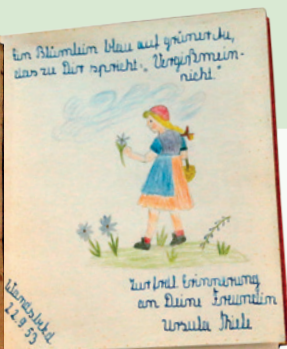 Ein Blümlein blau auf grüner Au,
das zu Dir spricht: „Vergißmein-
nicht."
Zur frdl. Erinnerung
an Deine Freundin
Ursula Thiele
Wandsbek d.
22.9.53